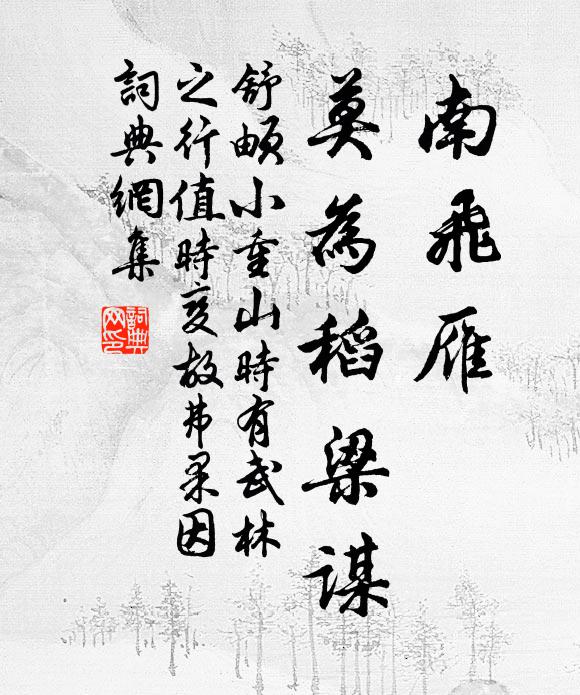 南飛雁
莫為稻梁謀
舒頔小重山時有武林
之行值時變故弗果因
詞典網集
詞典網印